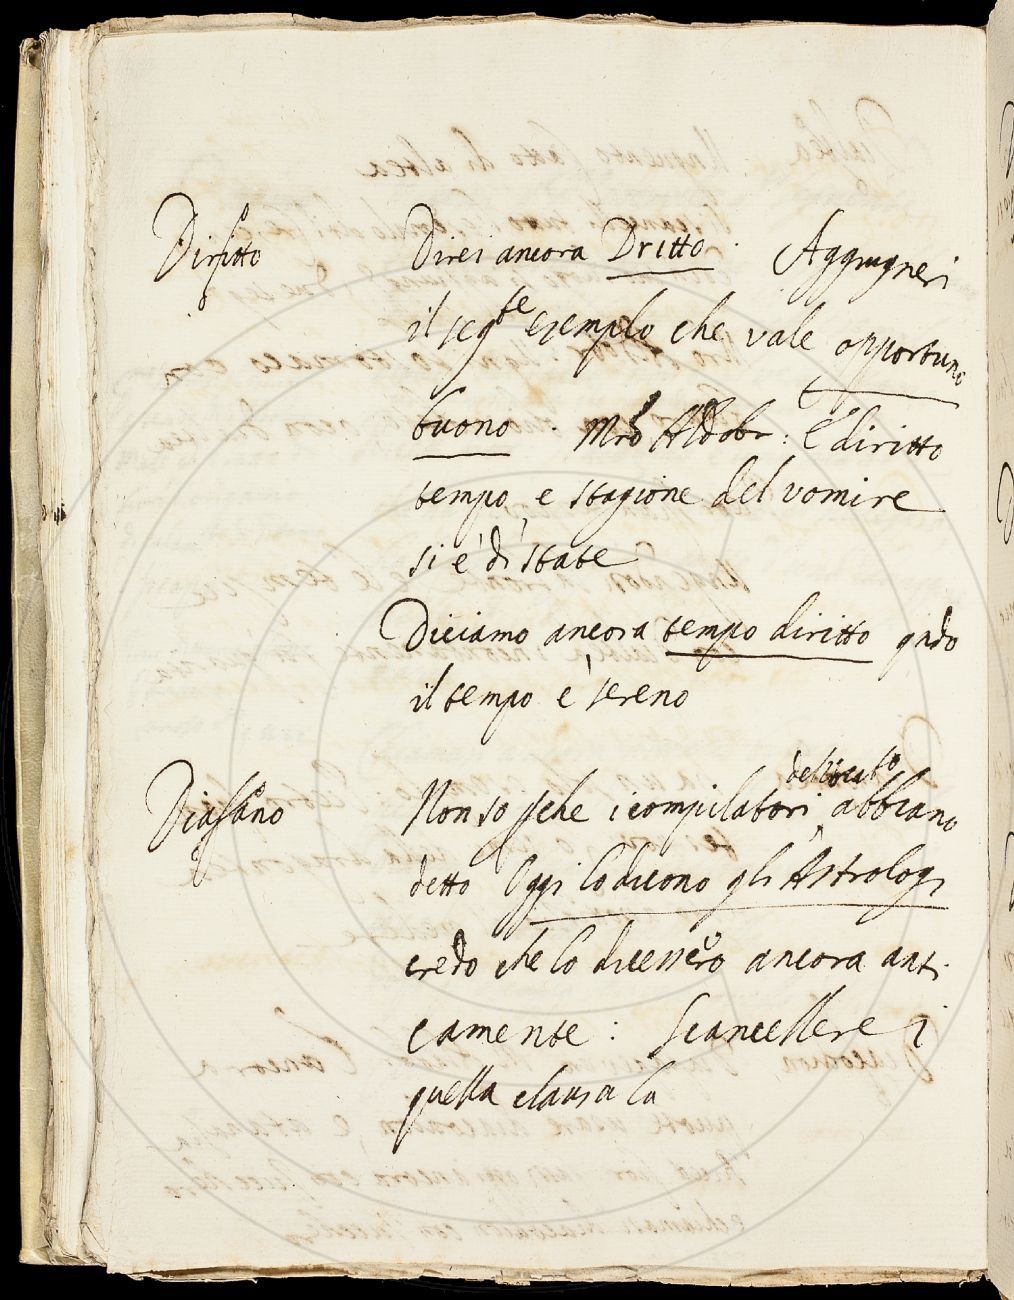 Diritto Direi ancora Dritto. Aggiugneri
il segte esempio che vale opportuno
buono. Mro Aldobr: è diritto
tempo, e stagione del vomire
si è di state
Diciamo ancora tempo diritto qndo
il tempo è sereno
Diafano Non so se i compilatori abbiano
detto Oggi lo dicono gli Astrologi
credo che lo dicessero ancora anti
camente: Scancellerei
quella clausola